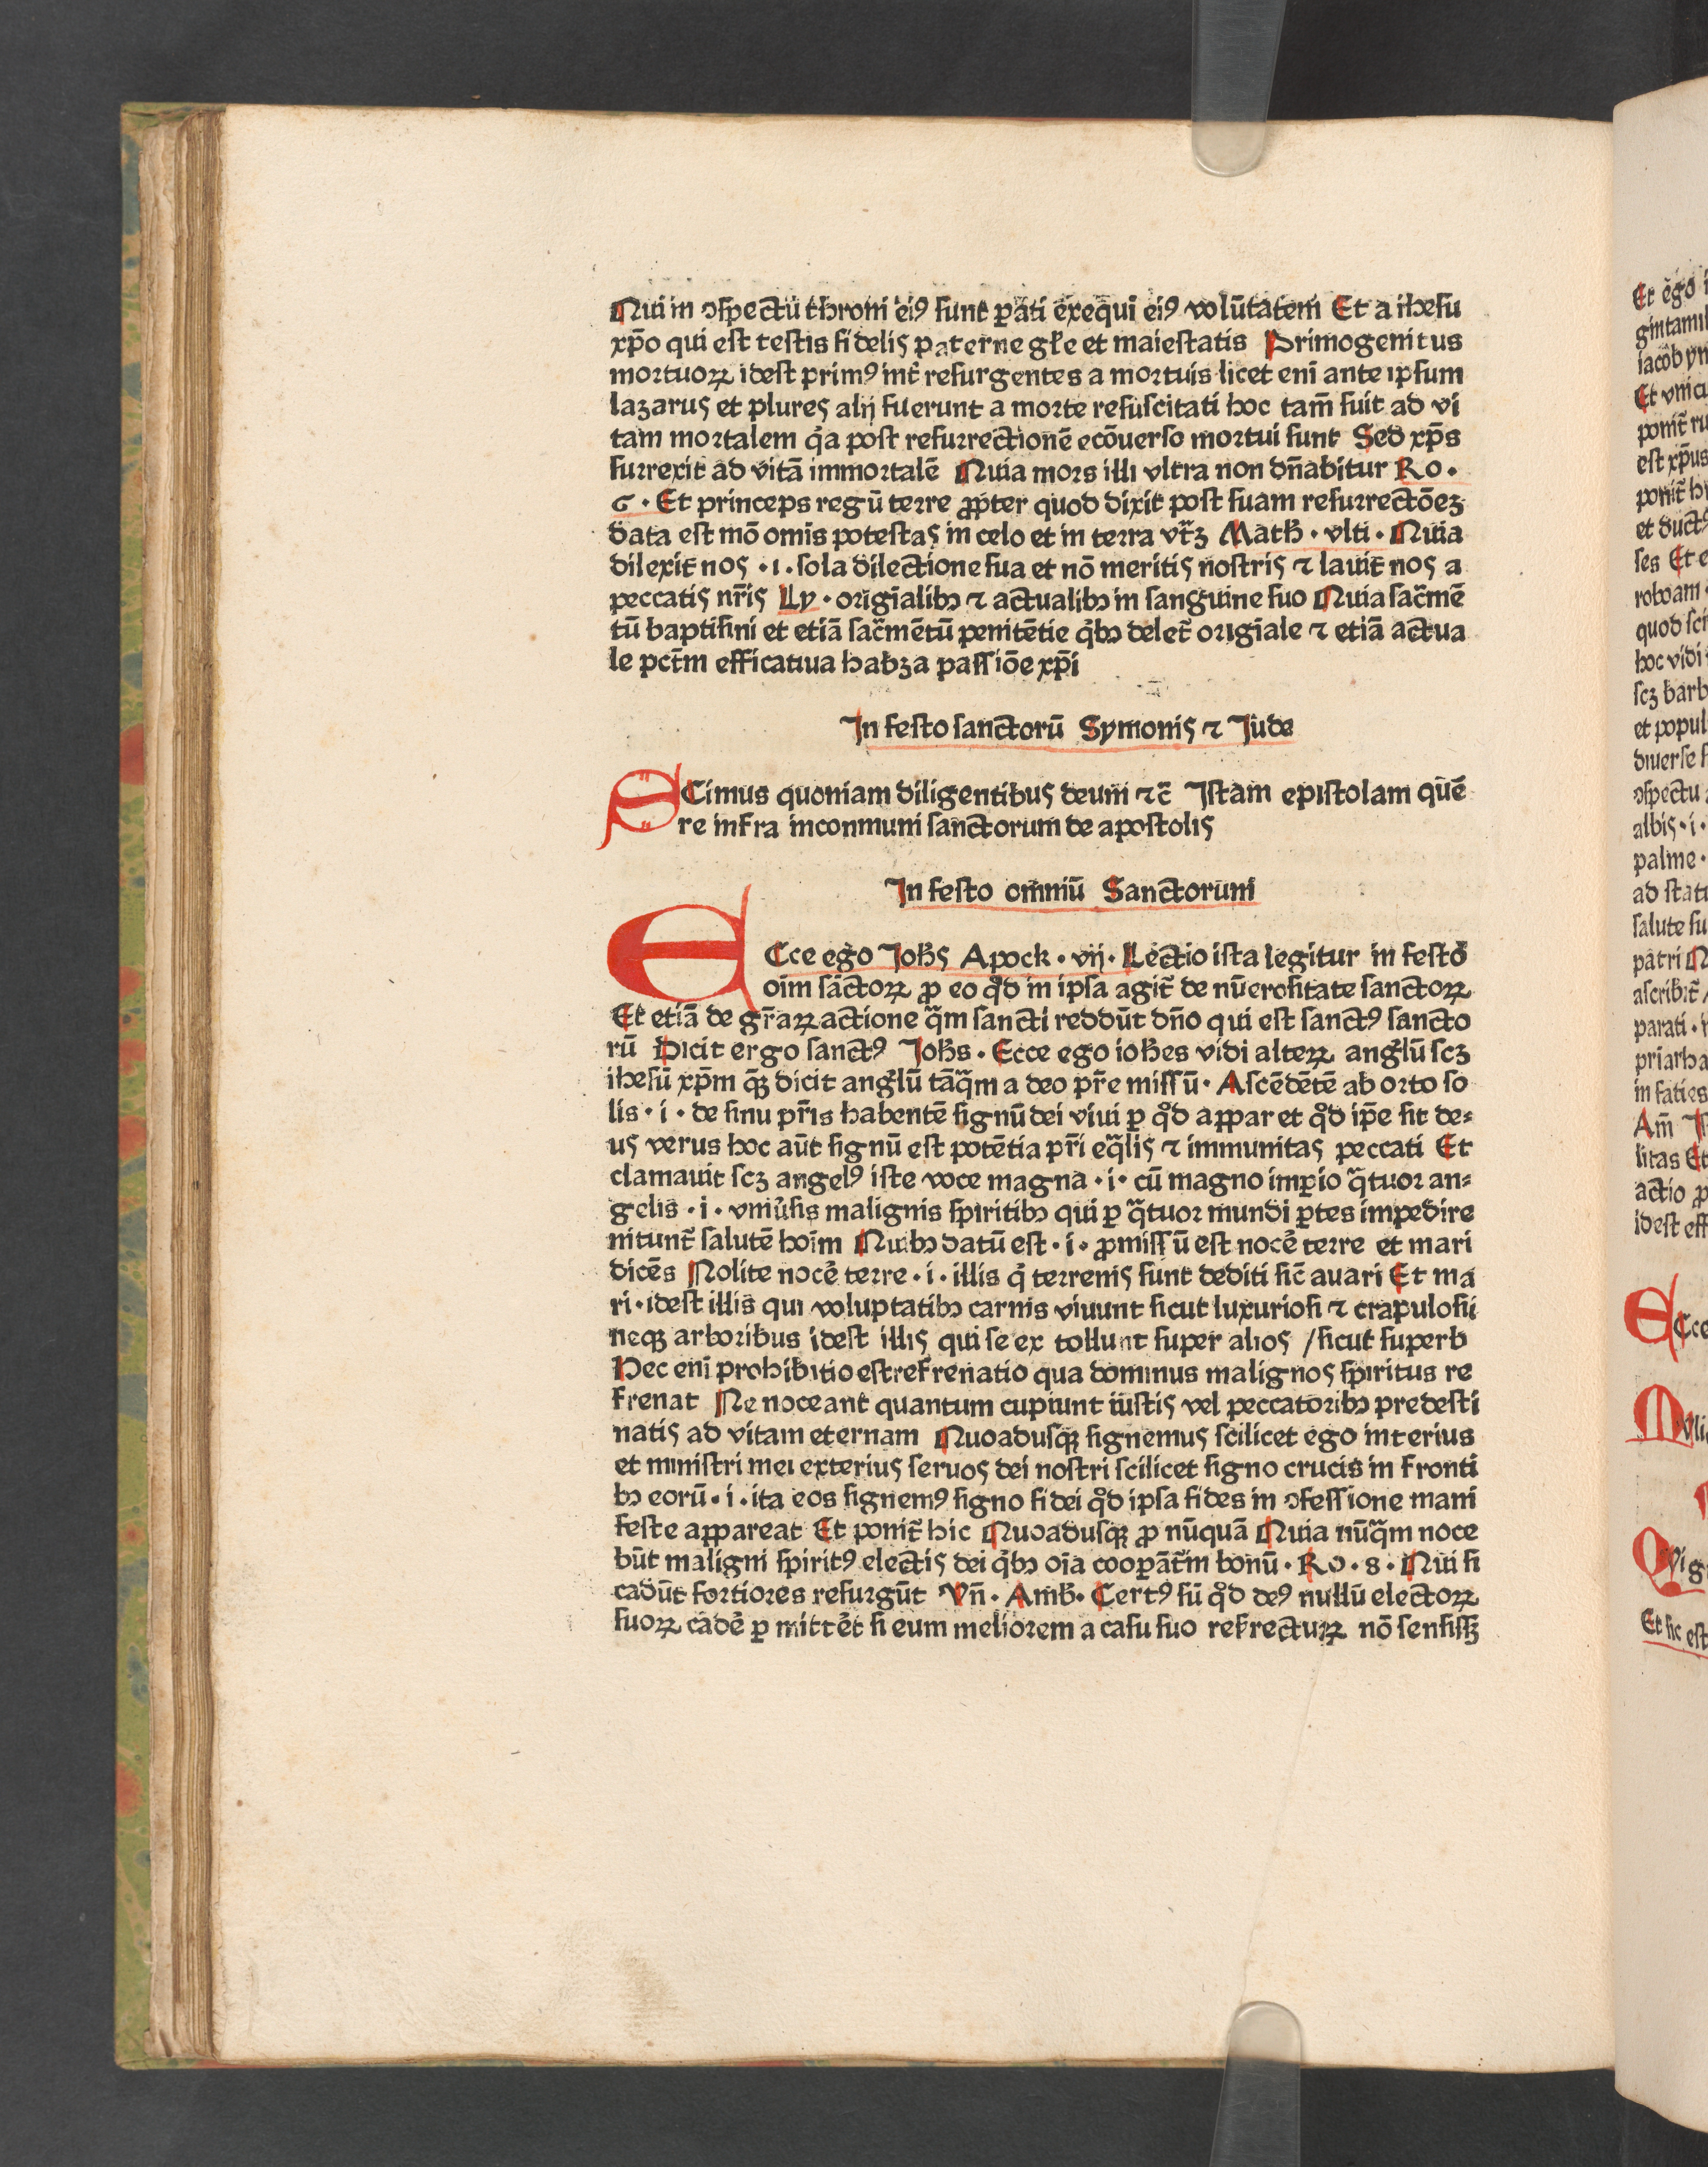 Qui in ↄſpectū throni eiꝰ ſunt ꝑati exequi eiꝰ volūtatem Et a iheſu
xp̄o qui eſt teſtis fidelis paterne gl̄e et maieſtatis Primogenitus
mortuoꝝ ideſt primꝰ int̄ reſurgentes a mortuis licet eni ante ipſum
lazarus et plures alij fuerunt a morte reſuſcitati hoc tam̄ fuit ad vi
tam mortalem q̇a poſt reſurrectionē ecōuerſo mortui ſunt Sed xp̄s
ſurrexit ad vitā immortalē Quia mors illi vltra non dn̄abitur Ro ·
6 · Et princeps regū terre ꝓpter quod dixit poſt ſuam reſurrectōeꝫ
data eſt mō omis poteſtas in celo et in terra vt̄ꝫ Math̄ · vlti · Quia
dilexit nos · i · ſola dilectione ſua et nō meritis noſtris ⁊ lauit nos a
peccatis nr̄is Ly · origīalibꝫ ⁊ actualibꝫ in ſanguine ſuo Quia ſac̄mē
tū baptiſmi et etiā ſac̄mētū penitētie q̇bꝫ delet̄ origīale ⁊ etiā actua
le pct̄m efficatiua habꝫ a paſſiōe xp̄i
In feſto ſanctorū Symonis ⁊ Jude
SCimus quoniam diligentibus deum ⁊c̄ Iſtam epiſtolam quē
re infra inconmuni ſanctorum de apoſtolis
In feſto omniū Sanctorum
ECce ego Joh̄s Apock · vij · Lectio iſta legitur in feſto
oim ſāctoꝝ ꝓ eo qͦd in ipſa agit̄ de nūeroſitate ſanctoꝝ
Et etiā de gr̄aꝝ actione q̄m ſancti reddūt dn̄o qui eſt ſanctꝰ ſancto
rū Dicit ergo ſanctꝰ Joh̄s · Ecce ego ioh̄es vidi alterꝝ angl̄ū ſcꝫ
iheſū xp̄m q̄ꝫ dicit angl̄ū tāq̄m a deo pr̄e miſſū · Aſcēdētē ab orto ſo
lis · i · de ſinu pr̄is habentē ſignū dei viui ꝑ qͦd apparet qͦd ip̄e ſit de⸗
us verus hoc aūt ſignū eſt potētia pr̄i eq̄lis ⁊ immunitas peccati Et
clamauit ſcꝫ angelꝰ iſte voce magna · i · cū magno imꝑio q̄tuor an⸗
gelis · i · vniu̇ſis malignis ſpiritibꝫ qui ꝑ q̄tuor mundi ꝑtes impedire
nitunt̄ ſalutē hoīm Quibꝫ datū eſt · i · ꝓmiſſū eſt nocē terre et mari
dicēs Nolite nocē terre · i · illis q̇ terrenis ſunt dediti ſic̄ auari Et ma
ri · ideſt illis qui voluptatibꝫ carnis viuunt ſicut luxurioſi ⁊ crapuloſi
neqꝫ arboribus ideſt illis qui ſe ex tollunt ſuper alios / ſicut ſuperb
Hec eni prohibitio eſt refrenatio qua dominus malignos ſpiritus re
frenat Ne noceant quantum cupiunt iuſtis vel peccatoribꝫ predeſti
natis ad vitam eternam Quoaduſqꝫ ſignemus ſcilicet ego interius
et miniſtri mei exterius ſeruos dei noſtri ſcilicet ſigno crucis in fronti
bꝫ eorū · i · ita eos ſignemꝰ ſigno fidei qͦd ipſa fides in ↄfeſſione mani
feſte appareat Et ponit̄ hic Quoaduſqꝫ ꝓ nūquā Quia nūq̄m noce
būt maligni ſpiritꝰ electis dei q̇bꝫ oīa cooꝑāt̄ in bonū · Ro · 8 · Qui ſi
cadūt fortiores reſurgūt Vn̄ · Amb̄ · Certꝰ ſū qͦd deꝰ nullū electoꝝ
ſuoꝝ cadē ꝑ mittēt ſi eum meliorem a caſu ſuo reſrectuꝝ nō ſenſiſſꝫ